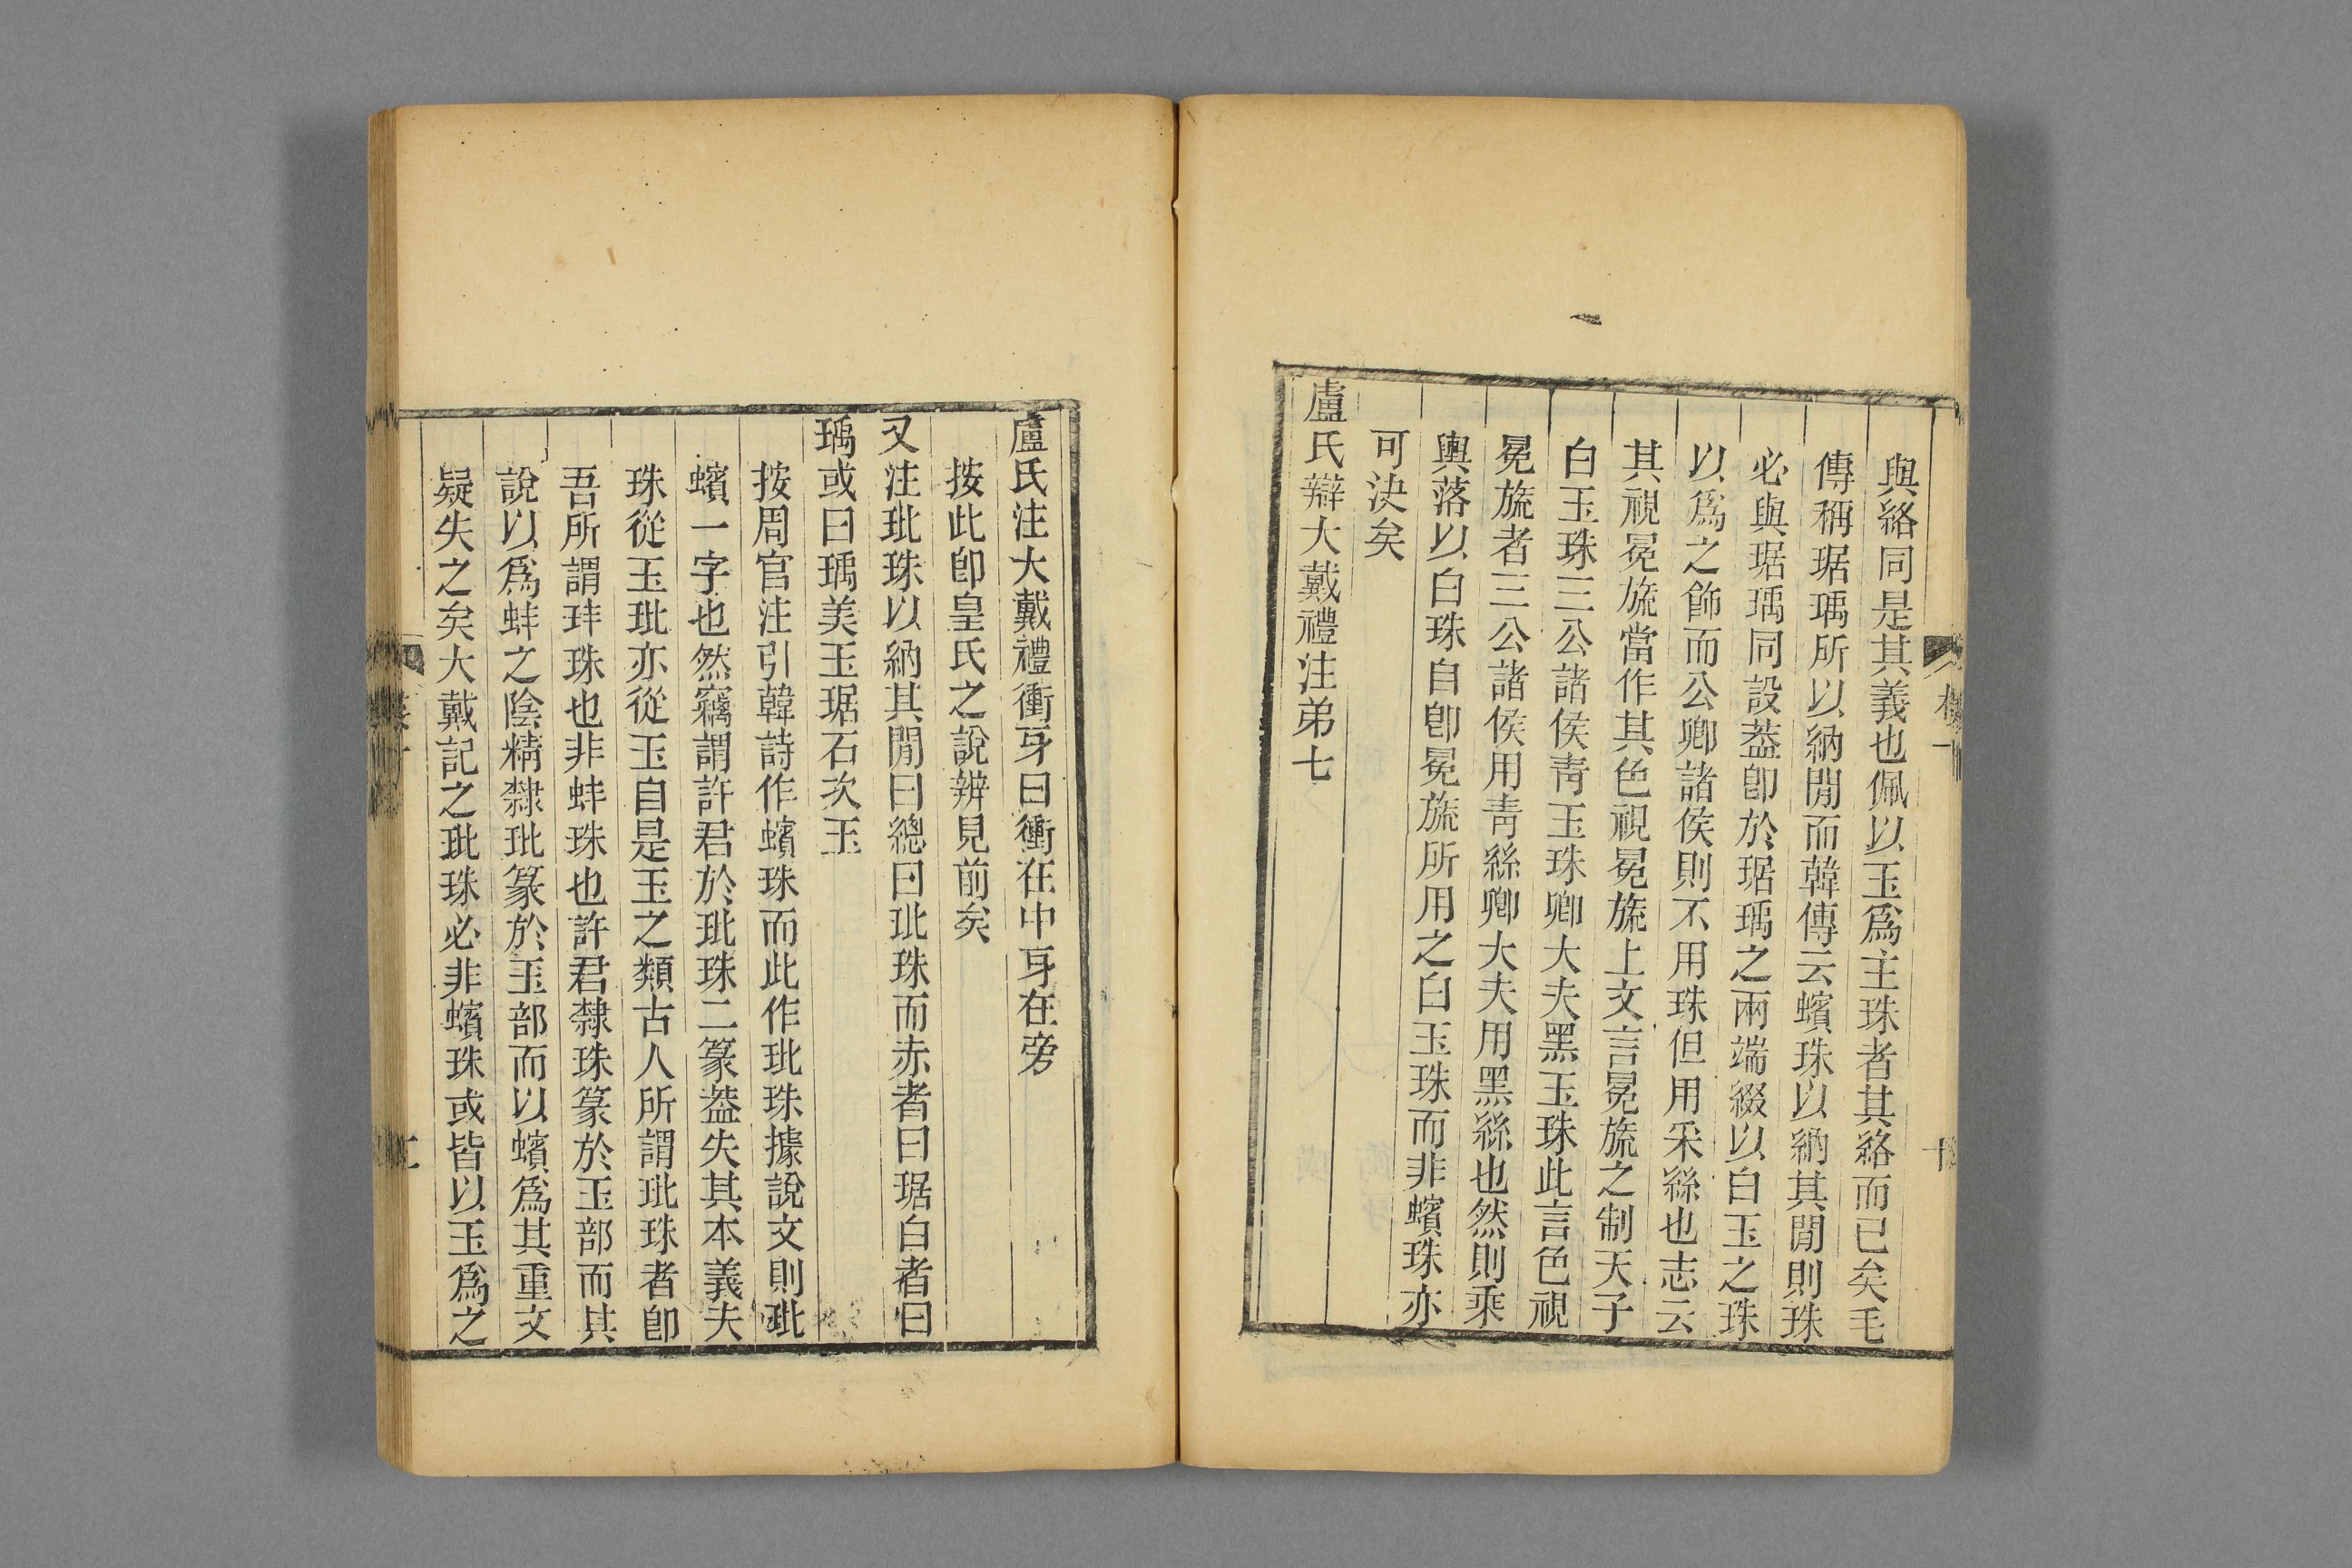 與絡同是其義也佩以玉爲主珠者其絡而已矣毛
傳稱琚瑀所以納閒而韓傳云蠙珠以納其閒則珠
必與琚瑀同設葢卽於琚瑀之兩端綴以白玉之珠
以爲之飾而公卿諸侯則不用珠但用采絲也志云
其視冕旒當作其色視冕旒上文言冕旒之制天子
白玉珠三公諸侯靑玉珠卿大夫黑玉珠此言色視
冕旒者三公諸侯用靑絲卿大夫用黑絲也然則乘
輿落以白珠自卽冕旒所用之白玉珠而非蠙珠亦
可決矣
盧氏辯大戴禮注弟七
盧氏注大戴禮衝牙曰衝在中牙在旁
按此卽皇氏之說辨見前矣
又注玭珠以納其閒曰總曰玭珠而赤者曰琚白者曰
瑀或曰瑀美玉琚石次玉
按周官注引韓詩作蠙珠而此作玭珠據說文則玭
蠙一字也然竊謂許君於玭珠二篆葢失其本義夫
珠從玉玭亦從玉自是玉之類古人所謂玭珠者卽
吾所謂玤珠也非蚌珠也許君隸珠篆於玉部而其
說以爲蚌之陰精隸玭篆於玉部而以蠙爲其重文
疑失之矣大戴記之玭珠必非蠙珠或皆以玉爲之